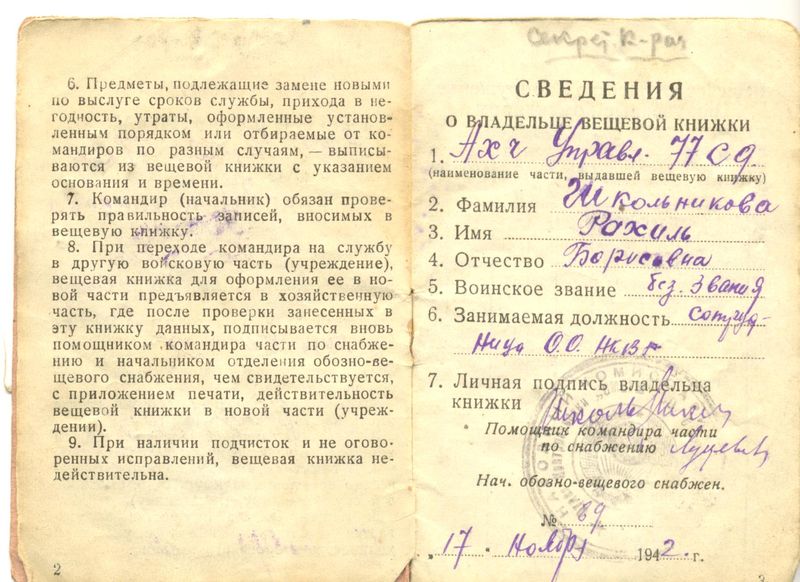 6. Предметы, подлежащие замене новыми
по выслуге сроков службы, прихода в не-
годность, утраты, оформленные установ-
ленным порядком или отбираемые от ко-
мандиров по разным случаям, — выписы-
ваются из вещевой книжки с указанием
основания и времени.
7. Командир (начальник) обязан прове-
рять правильность записей, вносимых в
вещевую книжку.
8. При переходе командира на службу
в другую войсковую часть (учреждение),
вещевая книжка для оформления ее в но-
вой части предъявляется в хозяйственную
часть, где после проверки занесенных в
эту книжку данных, подписывается вновь
помощником командира части по снабже-
нию и начальником отделения обозно-ве-
щевого снабжения, чем свидетельствуется,
с приложением печати, действительность
вещевой книжки в новой части (учреж-
дении).
9. При наличии подчисток и не огово-
ренных исправлений, вещевая книжка не-
действительна.
2
Секрет
СВЕДЕНИЯ
О ВЛАДЕЛЬЦЕ ВЕЩЕВОЙ КНИЖКИ
1. АХЧ Управл. 77 СД
(наименование части, выдавшей вещевую книжку)
2. Фамилия Школьникова
3. Имя Рахиль
4. Отчество Борисовна
5. Воинское звание без звания
6. Занимаемая должность сотруд-
ница О.О. НКВД
7. Личная подпись владельца
книжки
Помощник командира части
по снабжению
Нач. обозно-вещевого снабжен.
№ 89
„17 " Ноября 1942 г.
3